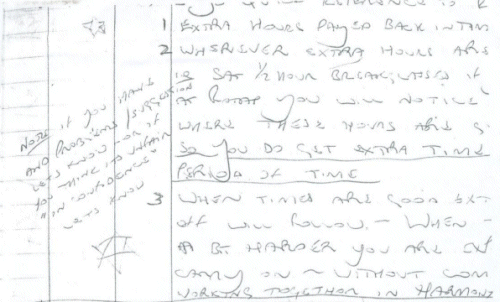 1 EXTRA HOURS PAYED BACK IN TIM
2 WHENEVER EXTRA HOURS ARE
IE SAT 1/2 HOUR BREAK, WORKED IF
AT YOU WILL NOTICE
WHERE THESE HOURS ARE G
SO YOU DO GET EXTRA TIME
PERIOD OF TIME
3 WHEN TIMES ARE GOOD EXT
OFF WILL FOLLOW. - WHEN
A BIT HARDER YOU ARE
CARRY ON ~ WITHOUT COM
WORKING TOGETHER IN HARMONE
NOTE IF YOU HAVE
AND PROBLEMS / SUGGESTION
LETS KNOW OR IF
YOU THINK IT'S UNFAIR
"IN CONFIDENCE"
LETS KNOW